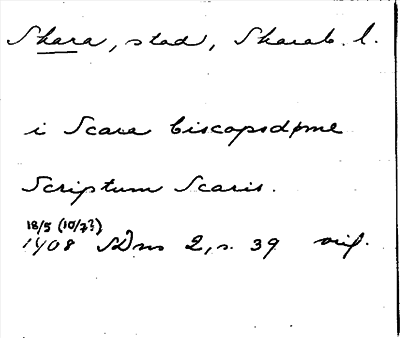 Skara, stad, Skarab. l.
i Scara biscopsdøme
Scriptum Scaris.
18/5 (10/7?)
1408 SDns 2, s. 39 orig.